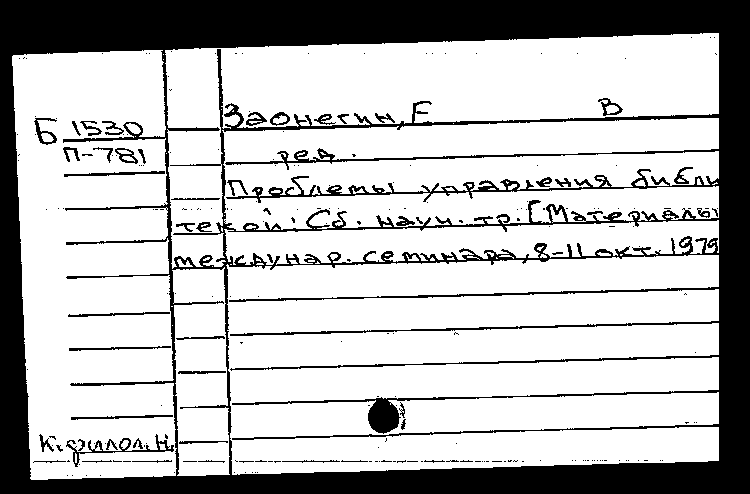 Заонегин, Е В
Б 1530
П-781 ред.
Проблемы управления библи
текой: Сб. науч. тр. [Материалы
междунар. семинара, 8-11 окт. 1979
К. филол. н.